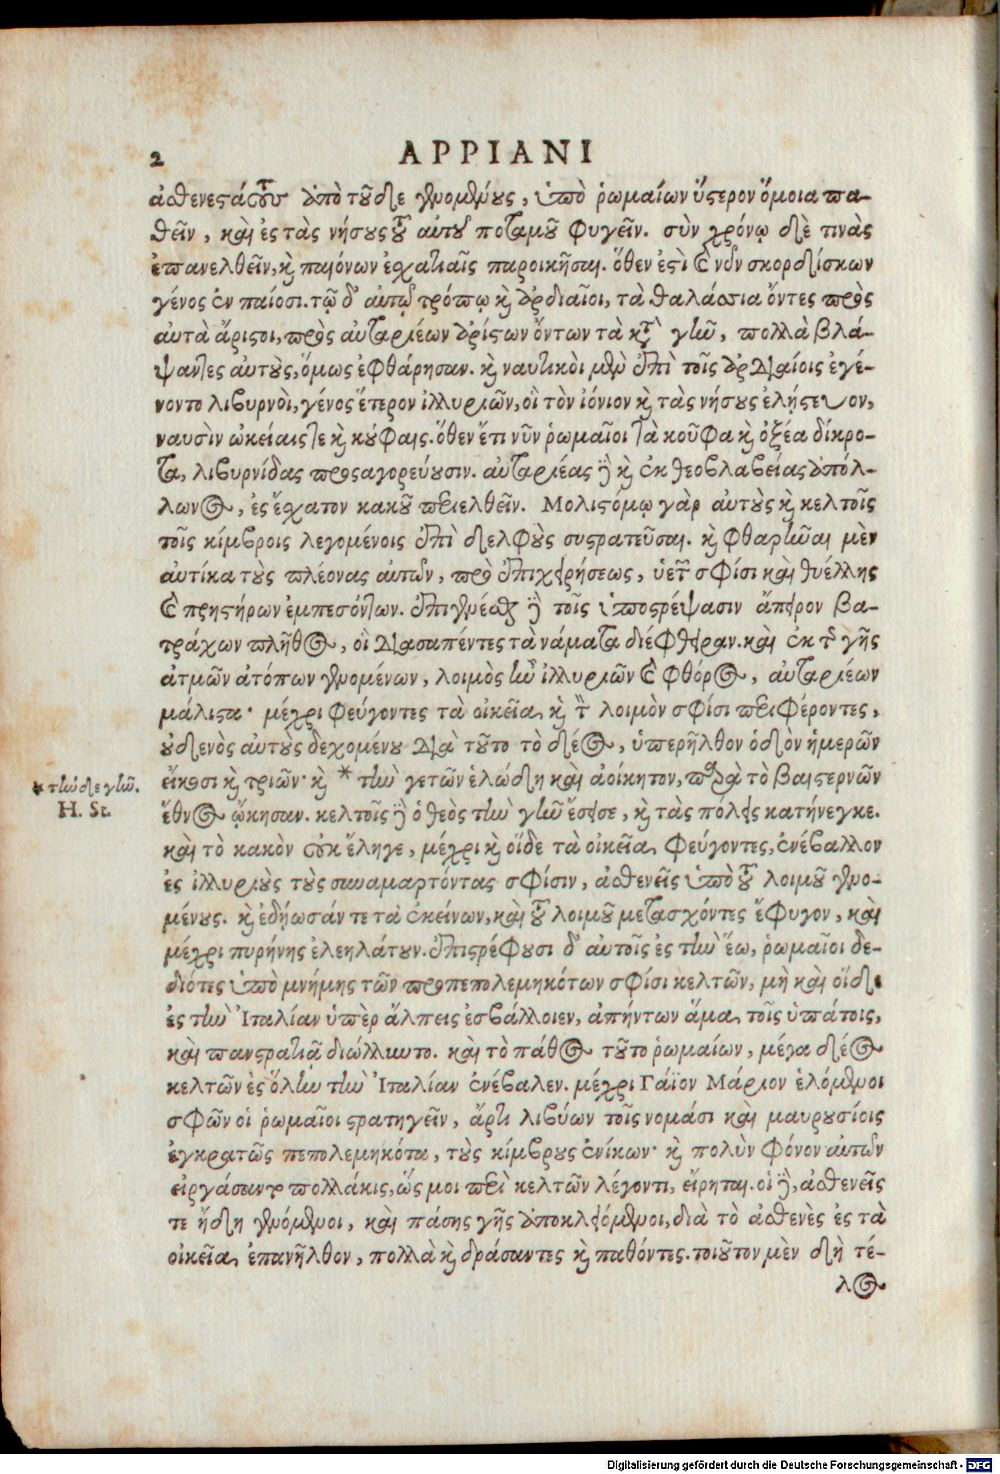 2 APPIANI
ἀσθενεστάτους ἀπὸ τοῦδε γενομένους, ὑπὸ ῥωμαίων ὕστερον ὅμοια πα-
θεῖν, καὶ ἐς τὰς νήσους τοῦ αὐτοῦ ποταμοῦ φυγεῖν. σὺν χρόνῳ δὲ τινὰς
ἐπανελθεῖν, καὶ παιόνων ἐσχατιαῖς παροικῆσαι. ὅθεν ἐστὶ καὶ νῦν σκορδίσκων
γένος ἐν παίοσι. τῷ δ' αὐτῷ τρόπῳ καὶ ἀρδιαῖοι, τὰ θαλάσσια ὄντες πρὸς
αὐτὰ ἄριστοι, πρὸς αὐταριέων ἀρίστων ὄντων τὰ κατὰ γῆν, πολλὰ βλά-
ψαντες αὐτοὺς, ὅμως ἐφθάρησαν. καὶ ναυτικοὶ μὲν ἐπὶ τοῖς ἀρδιαίοις ἐγέ-
νοντο λιβυρνοὶ, γένος ἕτερον ἰλλυριῶν, οἳ τὸν ἰόνιον καὶ τὰς νήσους ἐλῄστευον,
ναυσὶν ὠκείαις τε καὶ κούφαις. ὅθεν ἔτι νῦν ῥωμαῖοι τὰ κοῦφα καὶ ὀξέα δίκρο-
τα, λιβυρνίδας προσαγορεύουσιν. αὐταριέας δὲ καὶ ἐκ θεοβλαβείας ἀπόλ-
λωνος, ἐς ἔσχατον κακοῦ περιελθεῖν. Μολιστόμῳ γὰρ αὐτοὺς καὶ κελτοῖς
τοῖς κίμβροις λεγομένοις ἐπὶ δελφοὺς συστρατεῦσαι. καὶ φθαρῆναι μὲν
αὐτίκα τοὺς πλέονας αὐτῶν, πρὸ ἐπιχειρήσεως, ὑετοῦ σφίσι καὶ θυέλλης
καὶ πρηστήρων ἐμπεσόντων. ἐπιγενέσθαι δὲ τοῖς ὑποστρέψασιν ἄπειρον βα-
τράχων πλῆθος, οἳ διασαπέντες τὰ νάματα διέφθειραν. καὶ ἐκ τῆς γῆς
ἀτμῶν ἀτόπων γενομένων, λοιμὸς ἦν ἰλλυριῶν καὶ φθόρος, αὐταριέων
μάλιστα· μέχρι φεύγοντες τὰ οἰκεῖα, καὶ τὸν λοιμὸν σφίσι περιφέροντες,
οὐδενὸς αὐτοὺς δεχομένου διὰ τοῦτο τὸ δέος, ὑπερῆλθον ὁδὸν ἡμερῶν
εἴκοσι καὶ τριῶν· καὶ * τὴν γετῶν ἑλώδη καὶ ἀοίκητον, παρὰ τὸ βαστερνῶν
* τὴν δὲ γῆν.
H. St.
ἔθνος ᾤκησαν. κελτοῖς δὲ ὁ θεὸς τὴν γῆν ἔσεισε, καὶ τὰς πόλεις κατήνεγκε.
καὶ τὸ κακὸν οὐκ ἔληγε, μέχρι καὶ οἵδε τὰ οἰκεῖα φεύγοντες, ἐνέβαλλον
ἐς ἰλλυριοὺς τοὺς συναμαρτόντας σφίσιν, ἀσθενεῖς ὑπὸ τοῦ λοιμοῦ γενο-
μένους. καὶ ἐδῄωσάν τε τὰ ἐκείνων, καὶ τοῦ λοιμοῦ μετασχόντες ἔφυγον, καὶ
μέχρι πυρήνης ἐλεηλάτουν. ἐπιστρέφουσι δ' αὐτοῖς ἐς τὴν ἕω, ῥωμαῖοι δε-
διότες ὑπὸ μνήμης τῶν προπεπολεμηκότων σφίσι κελτῶν, μὴ καὶ οἵδε
ἐς τὴν Ἰταλίαν ὑπὲρ ἄλπεις ἐσβάλλοιεν, ἀπήντων ἅμα τοῖς ὑπάτοις,
καὶ πανστρατιᾷ διώλλυντο. καὶ τὸ πάθος τοῦτο ῥωμαίων, μέγα δέος
κελτῶν ἐς ὅλην τὴν Ἰταλίαν ἐνέβαλεν. μέχρι Γάϊον Μάριον ἑλόμενοι
σφῶν οἱ ῥωμαῖοι στρατηγεῖν, ἄρτι λιβύων τοῖς νομάσι καὶ μαυρουσίοις
ἐγκρατῶς πεπολεμηκότα, τοὺς κίμβρους ἐνίκων· καὶ πολὺν φόνον αὐτῶν
εἰργάσαντο πολλάκις, ὥς μοι περὶ κελτῶν λέγοντι, εἴρηται. οἱ δὲ, ἀσθενεῖς
τε ἤδη γενόμενοι, καὶ πάσης γῆς ἀποκλειόμενοι, διὰ τὸ ἀσθενὲς ἐς τὰ
οἰκεῖα ἐπανῆλθον, πολλὰ καὶ δράσαντες καὶ παθόντες. τοιοῦτον μὲν δὴ τέ-
λος
Digitalisierung gefördert durch die Deutsche Forschungsgemeinschaft - DFG